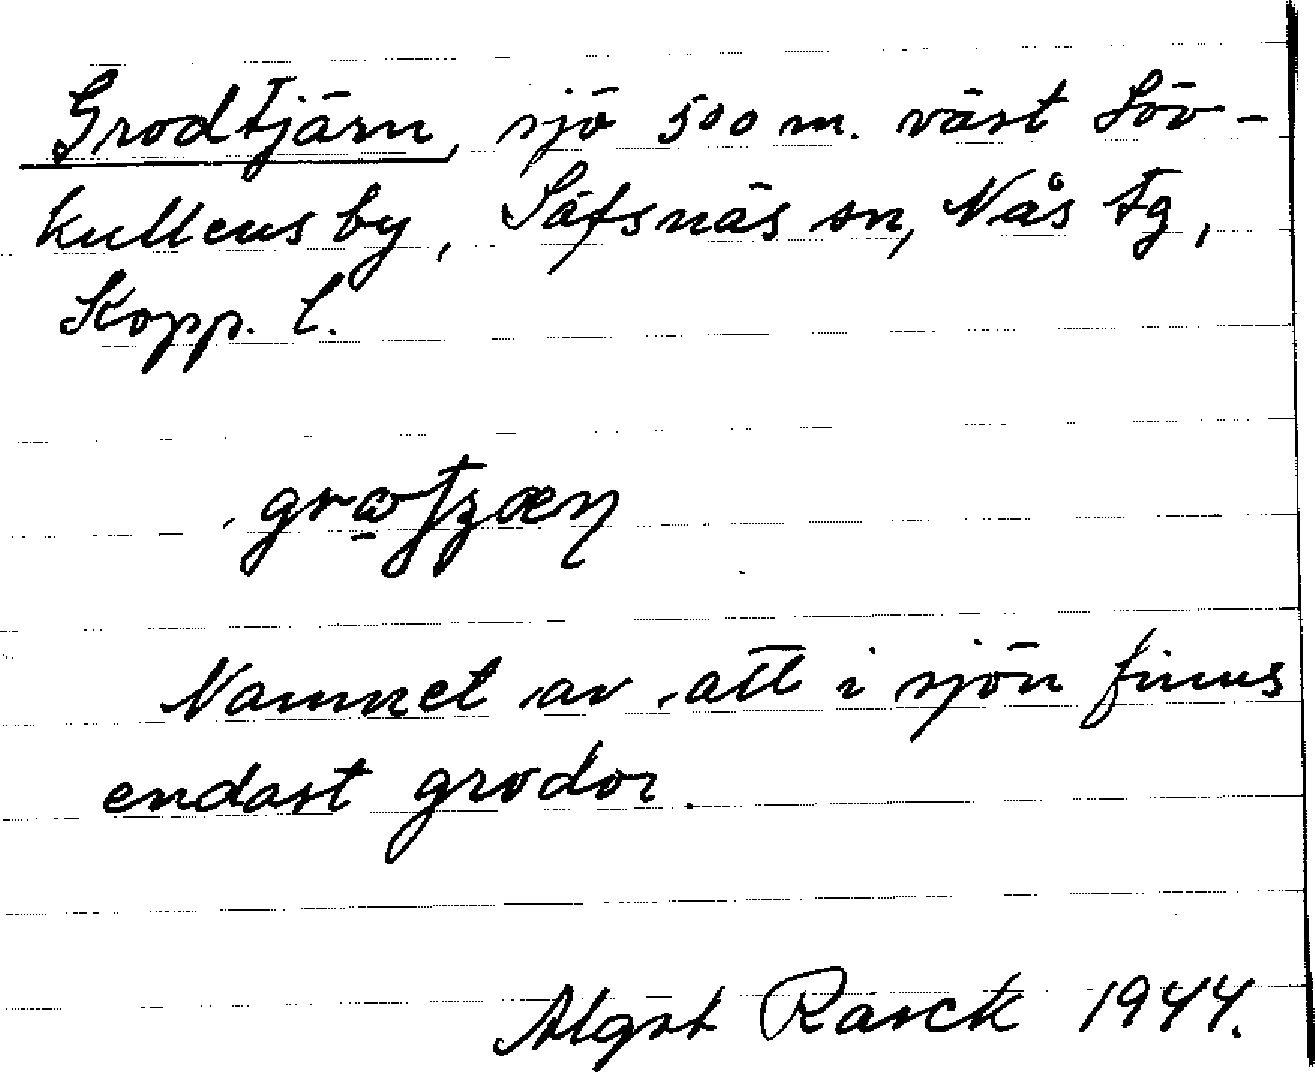 Grodtjärn, sjö 500 m. väst Löv-
kullens by, Säfsnäs sn, Nås tg,
Kopp. l.
Namnet av att i sjön finns
endast grodor.
Algot Rasck 1944.